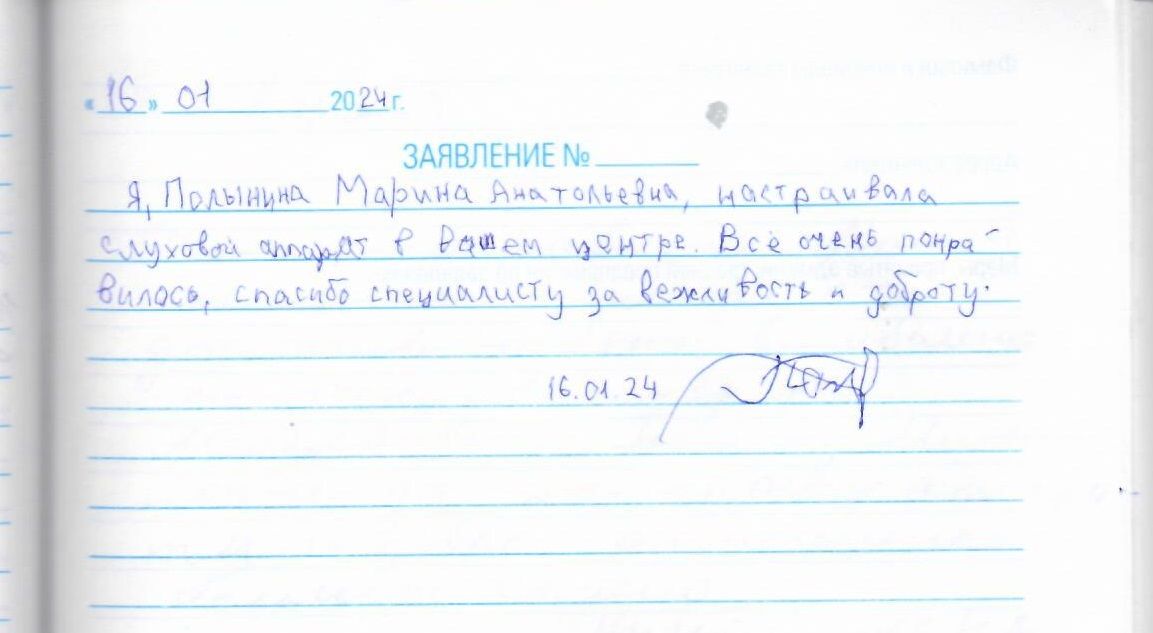 «16» 01 2024 г.
ЗАЯВЛЕНИЕ №
Я, Полынина Марина Анатольевна, настраивала
слуховой аппарат в вашем центре. Всё очень понра-
вилось, спасибо специалисту за вежливость и доброту.
16.01.24